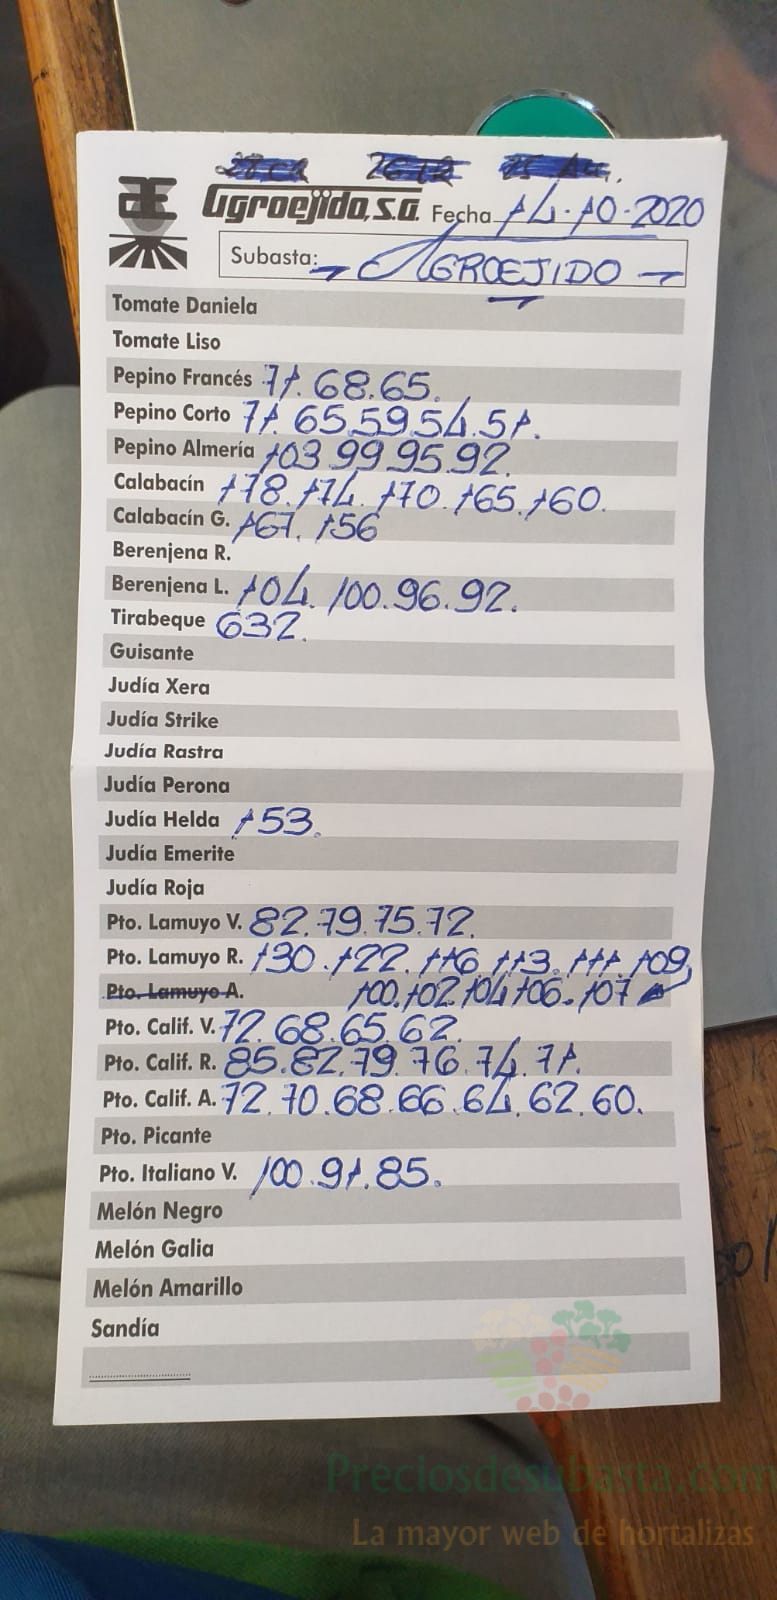 Agroejido, s.a. Fecha 14·10·2020
Subasta: AGROEJIDO
Tomate Daniela
Tomate Liso
Pepino Francés 71. 68. 65.
Pepino Corto 71. 65. 59. 54. 51.
Pepino Almería 103 99 95. 92.
Calabacín 178. 174. 170. 165. 160.
Calabacín G. 167. 156
Berenjena R.
Berenjena L. 104. 100. 96. 92.
Tirabeque 632.
Guisante
Judía Xera
Judía Strike
Judía Rastra
Judía Perona
Judía Helda 153.
Judía Emerite
Judía Roja
Pto. Lamuyo V. 82. 79. 75. 72.
Pto. Lamuyo R. 130. 122. 116 113. 111. 109,
Pto. Lamuyo A. 100. 102 104 106. 107
Pto. Calif. V. 72. 68. 65. 62.
Pto. Calif. R. 85. 82. 79. 76. 74. 71.
Pto. Calif. A. 72. 70. 68. 66. 64. 62. 60.
Pto. Picante
Pto. Italiano V. 100. 91. 85.
Melón Negro
Melón Galia
Melón Amarillo
Sandía
Preciosdesubasta.com
La mayor web de hortalizas